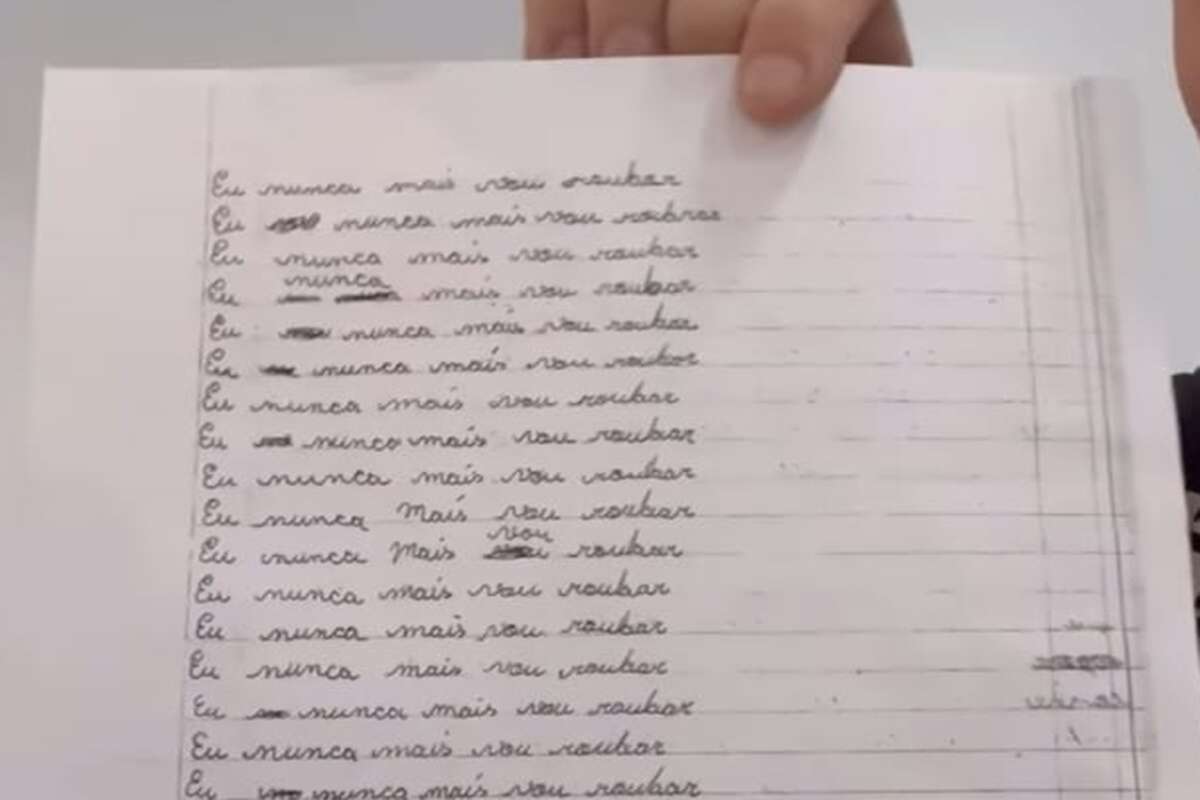 Eu nunca mais vou roubar
Eu nunca mais vou roubrar
Eu nunca mais vou roubar
Eu nunca mais vou roubar
Eu nunca mais vou roubar
Eu nunca mais vou roubar
Eu nunca mais vou roubar
Eu nunca mais vou roubar
Eu nunca mais vou roubar
Eu nunca Mais vou roubar
Eu nunca Mais vou roubar
Eu nunca mais vou roubar
Eu nunca mais vou roubar
Eu nunca mais vou roubar
Eu nunca mais vou roubar
Eu nunca mais vou roubar
Eu nunca mais vou roubar